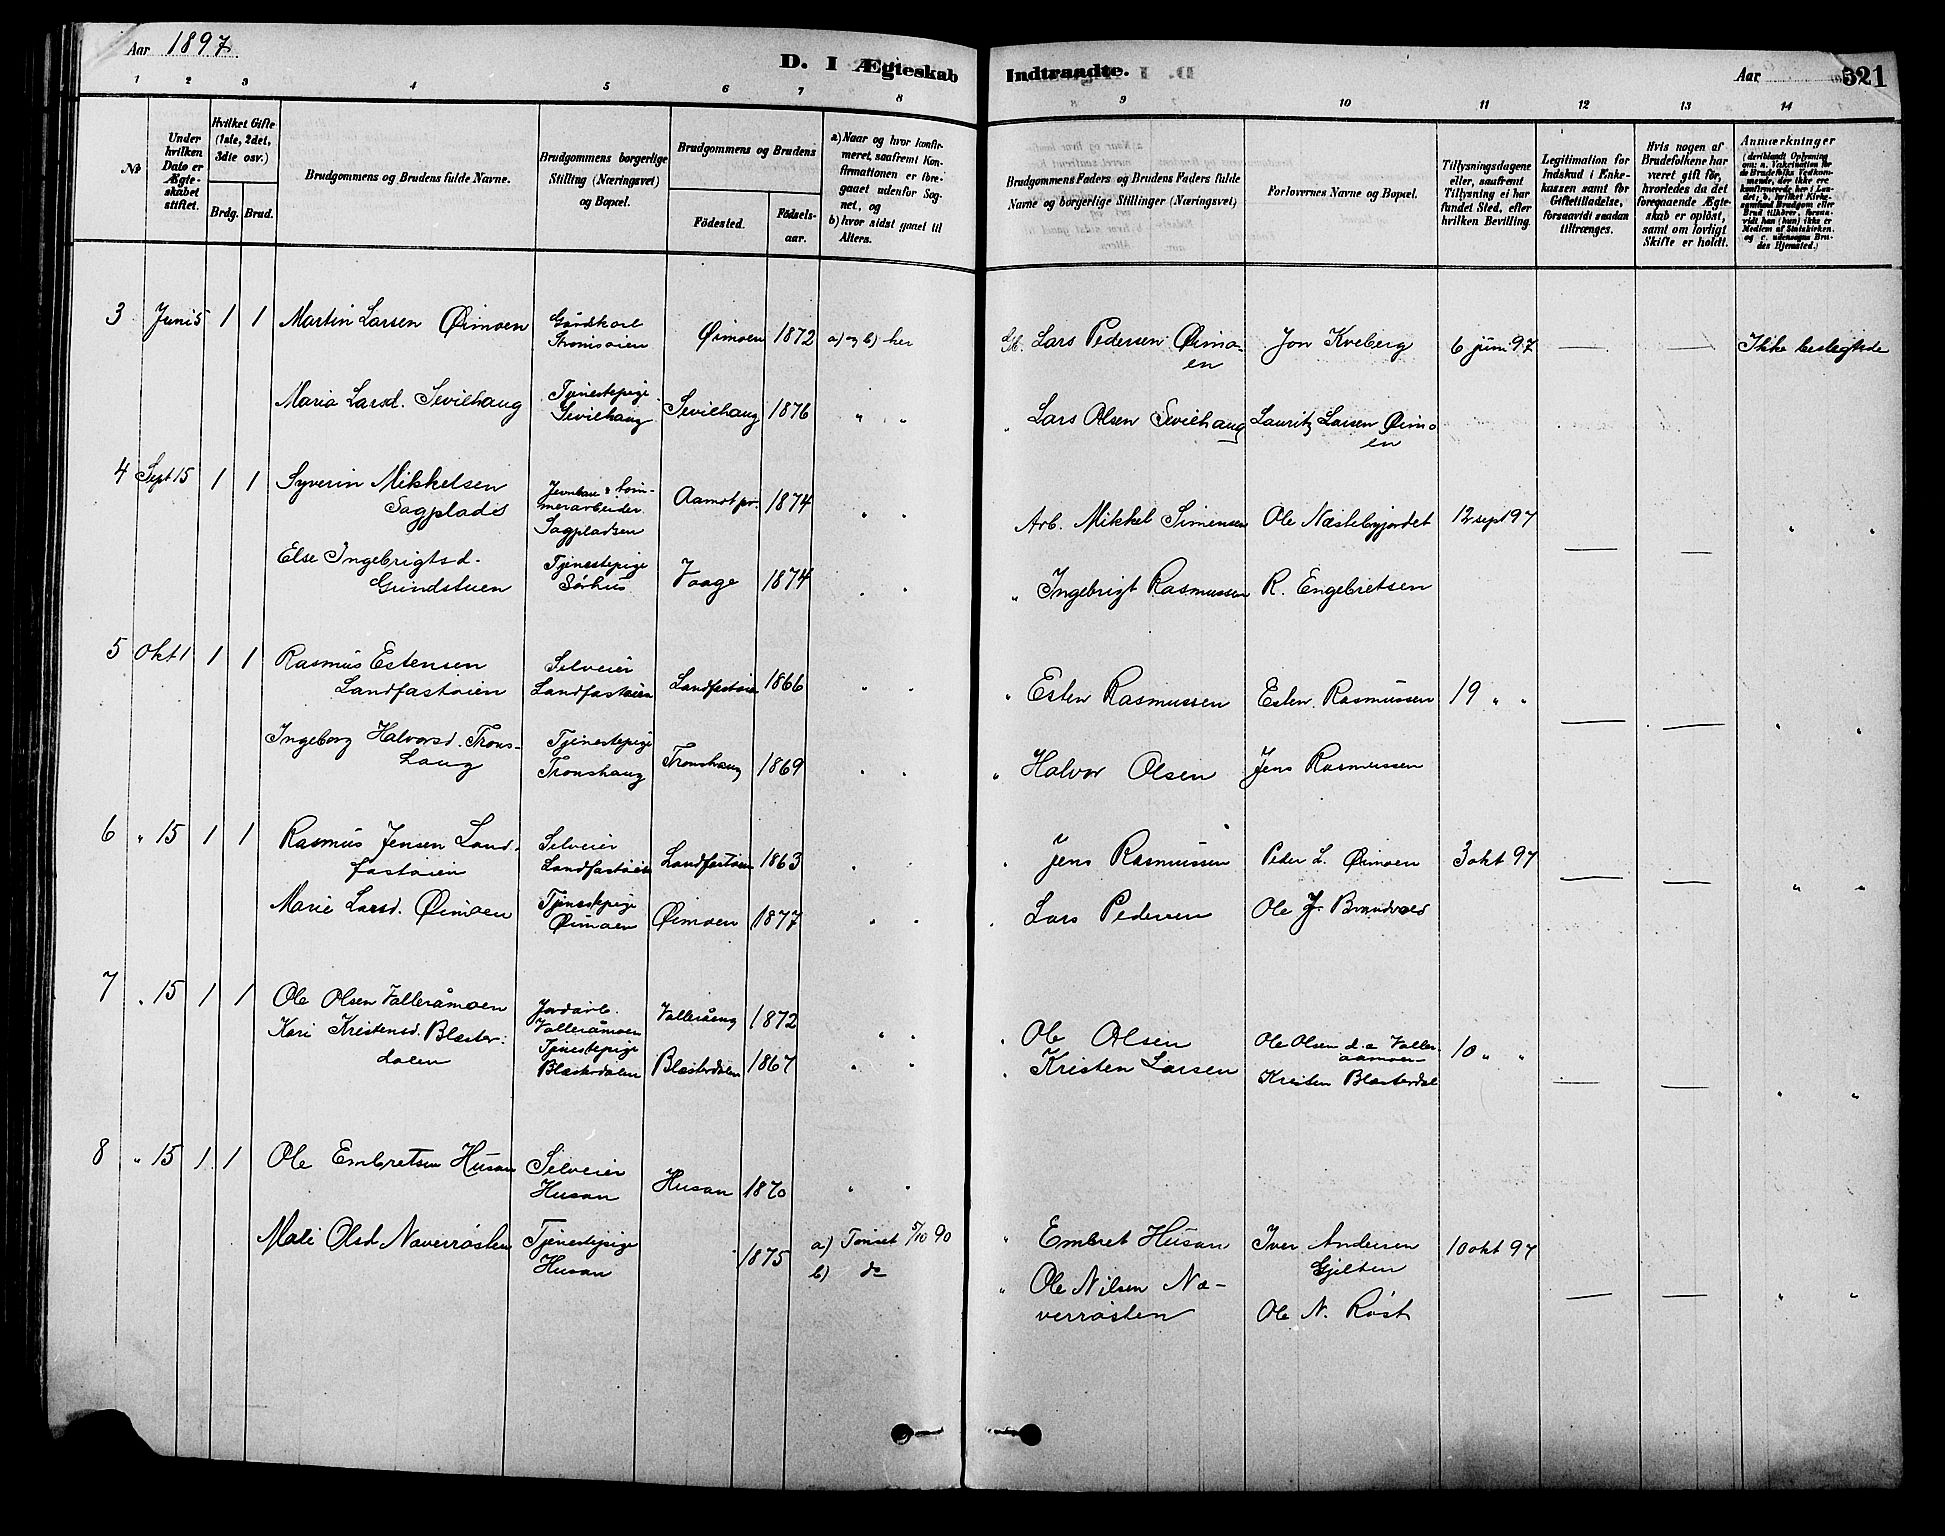 Aar 1897
D. I Ægteskab Indtraadte.
Aar
321
1 2 3 4 5 6 7 8 9 10 11 12 13 14
№
Under hvilken Dato er Ægteskabet stiftet.
Hvilket Gifte (1ste, 2det, 3die osv.)
Brdg. Brud.
Brudgommens og Brudens fulde Navne.
Brudgommens borgerlige Stilling (Næringsvei) og Bopæl.
Brudgommens og Brudens
Fødested.
Fødselsaar.
a) Naar og hvor konfirmeret, saafremt Konfirmationen er foregaaet udenfor Sognet, og
b) hvor sidst gaaet til Alters.
Brudgommens Faders og Brudens Faders fulde Navne og borgerlige Stillinger (Næringsvei)
Forlovernes Navne og Bopæl.
Tillysningsdagene eller, saafremt Tillysning ei har fundet Sted, efter hvilken Bevilling.
Legitimation for Indskud i Enkekassen samt for Giftetilladelse, forsaavidt saadan tiltrænges.
Hvis nogen af Brudefolkene har været gift før, hvorledes da det foregaaende Ægteskab er opløst, samt om lovligt Skifte er holdt.
Anmærkninger
3 Juni 5 1 1 Martin Larsen Øimoen Gårdkarl Øimoen 1872 a) og b) her Lars Pedersen Øimoen Jon Kveberg 6 juni 97 — — Ikke beslegtede
Maria Larsd. Sevilhaug Tjenestepige Sevilhaug Sevilhaug 1876 " " Lars Olsen Sevilhaug Lauritz Larsen Øimoen
4 Sept 15 1 1 Syverin Mikkelsen Sagplads Sagpladsen Aamot pr. 1874 " " Arb. Mikkel Simensen Ole Næstebyjordet 12 sept 97 — — " "
Else Ingebrigtsd. Grindstuen Tjenestepige Sørhus Vaage 1874 " " " Ingebrigt Rasmussen R. Engebretsen
5 Okt 1 1 1 Rasmus Estensen Landfastøien Selveier Landfastøien Landfastøien 1866 " " " Esten Rasmussen Esten Rasmussen 19 " " — — " "
Ingeborg Halvorsd. Tronshaug Tjenestepige Tronshaug Tronshaug 1869 " " " Halvor Olsen Jens Rasmussen
6 " 15 1 1 Rasmus Jensen Landfastøien Selveier Landfastøien Landfastøien 1863 " " " Jens Rasmussen Peder L. Øimoen 3 okt 97 — — " "
Marie Larsd. Øimoen Tjenestepige Øimoen Øimoen 1877 " " " Lars Pedersen Ole J. Brandvold
7 " 15 1 1 Ole Olsen Valleråmoen Jordarb. Valleråmoen Valleråeng 1872 " " " Ole Olsen Ole Olsen d.e. Valleraamoen 10 " " — — " "
Kari Kristensd. Blæsterdalen Tjenestepige Blæsterdalen Blæsterdalen 1867 " " " Kristen Larsen Kristen Blæsterdal
8 " 15 1 1 Ole Embretsen Husan Selveier Husan Husan 1870 " " " Embret Husan Iver Andersen Gjelten 10 okt 97 — — " "
Mali Olsd Naverrøsten Tjenestepige Husan 1875 a) Tønset 5/10 90 b) do " Ole Nilsen Næverrøsten Ole N. Røst